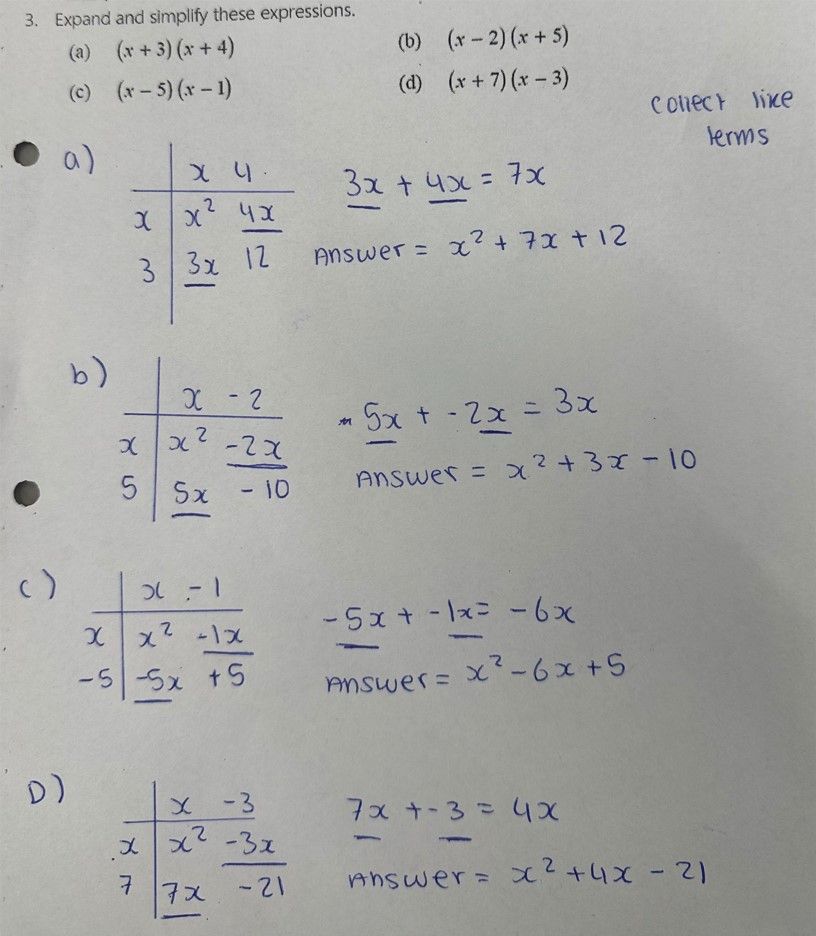 3. Expand and simplify these expressions.
(a) (x + 3)(x + 4) (b) (x − 2)(x + 5)
(c) (x − 5)(x − 1) (d) (x + 7)(x − 3)
collect like
terms
a)
x 4
x x² 4x
3 3x 12
3x + 4x = 7x
Answer = x² + 7x + 12
b)
x -2
x x² -2x
5 5x -10
5x + -2x = 3x
Answer = x² + 3x - 10
c)
x -1
x x² -1x
-5 -5x +5
-5x + -1x = -6x
Answer = x² - 6x + 5
D)
x -3
x x² -3x
7 7x -21
7x + -3 = 4x
Answer = x² + 4x - 21